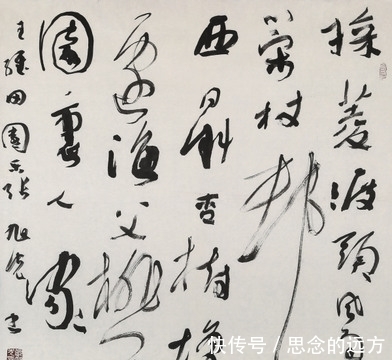 採菱渡頭風
策杖林
西日斜杏樹壇
邊漁父桃花
源裏人家
王維田園樂張旭光書
快传号 / 思念的远方